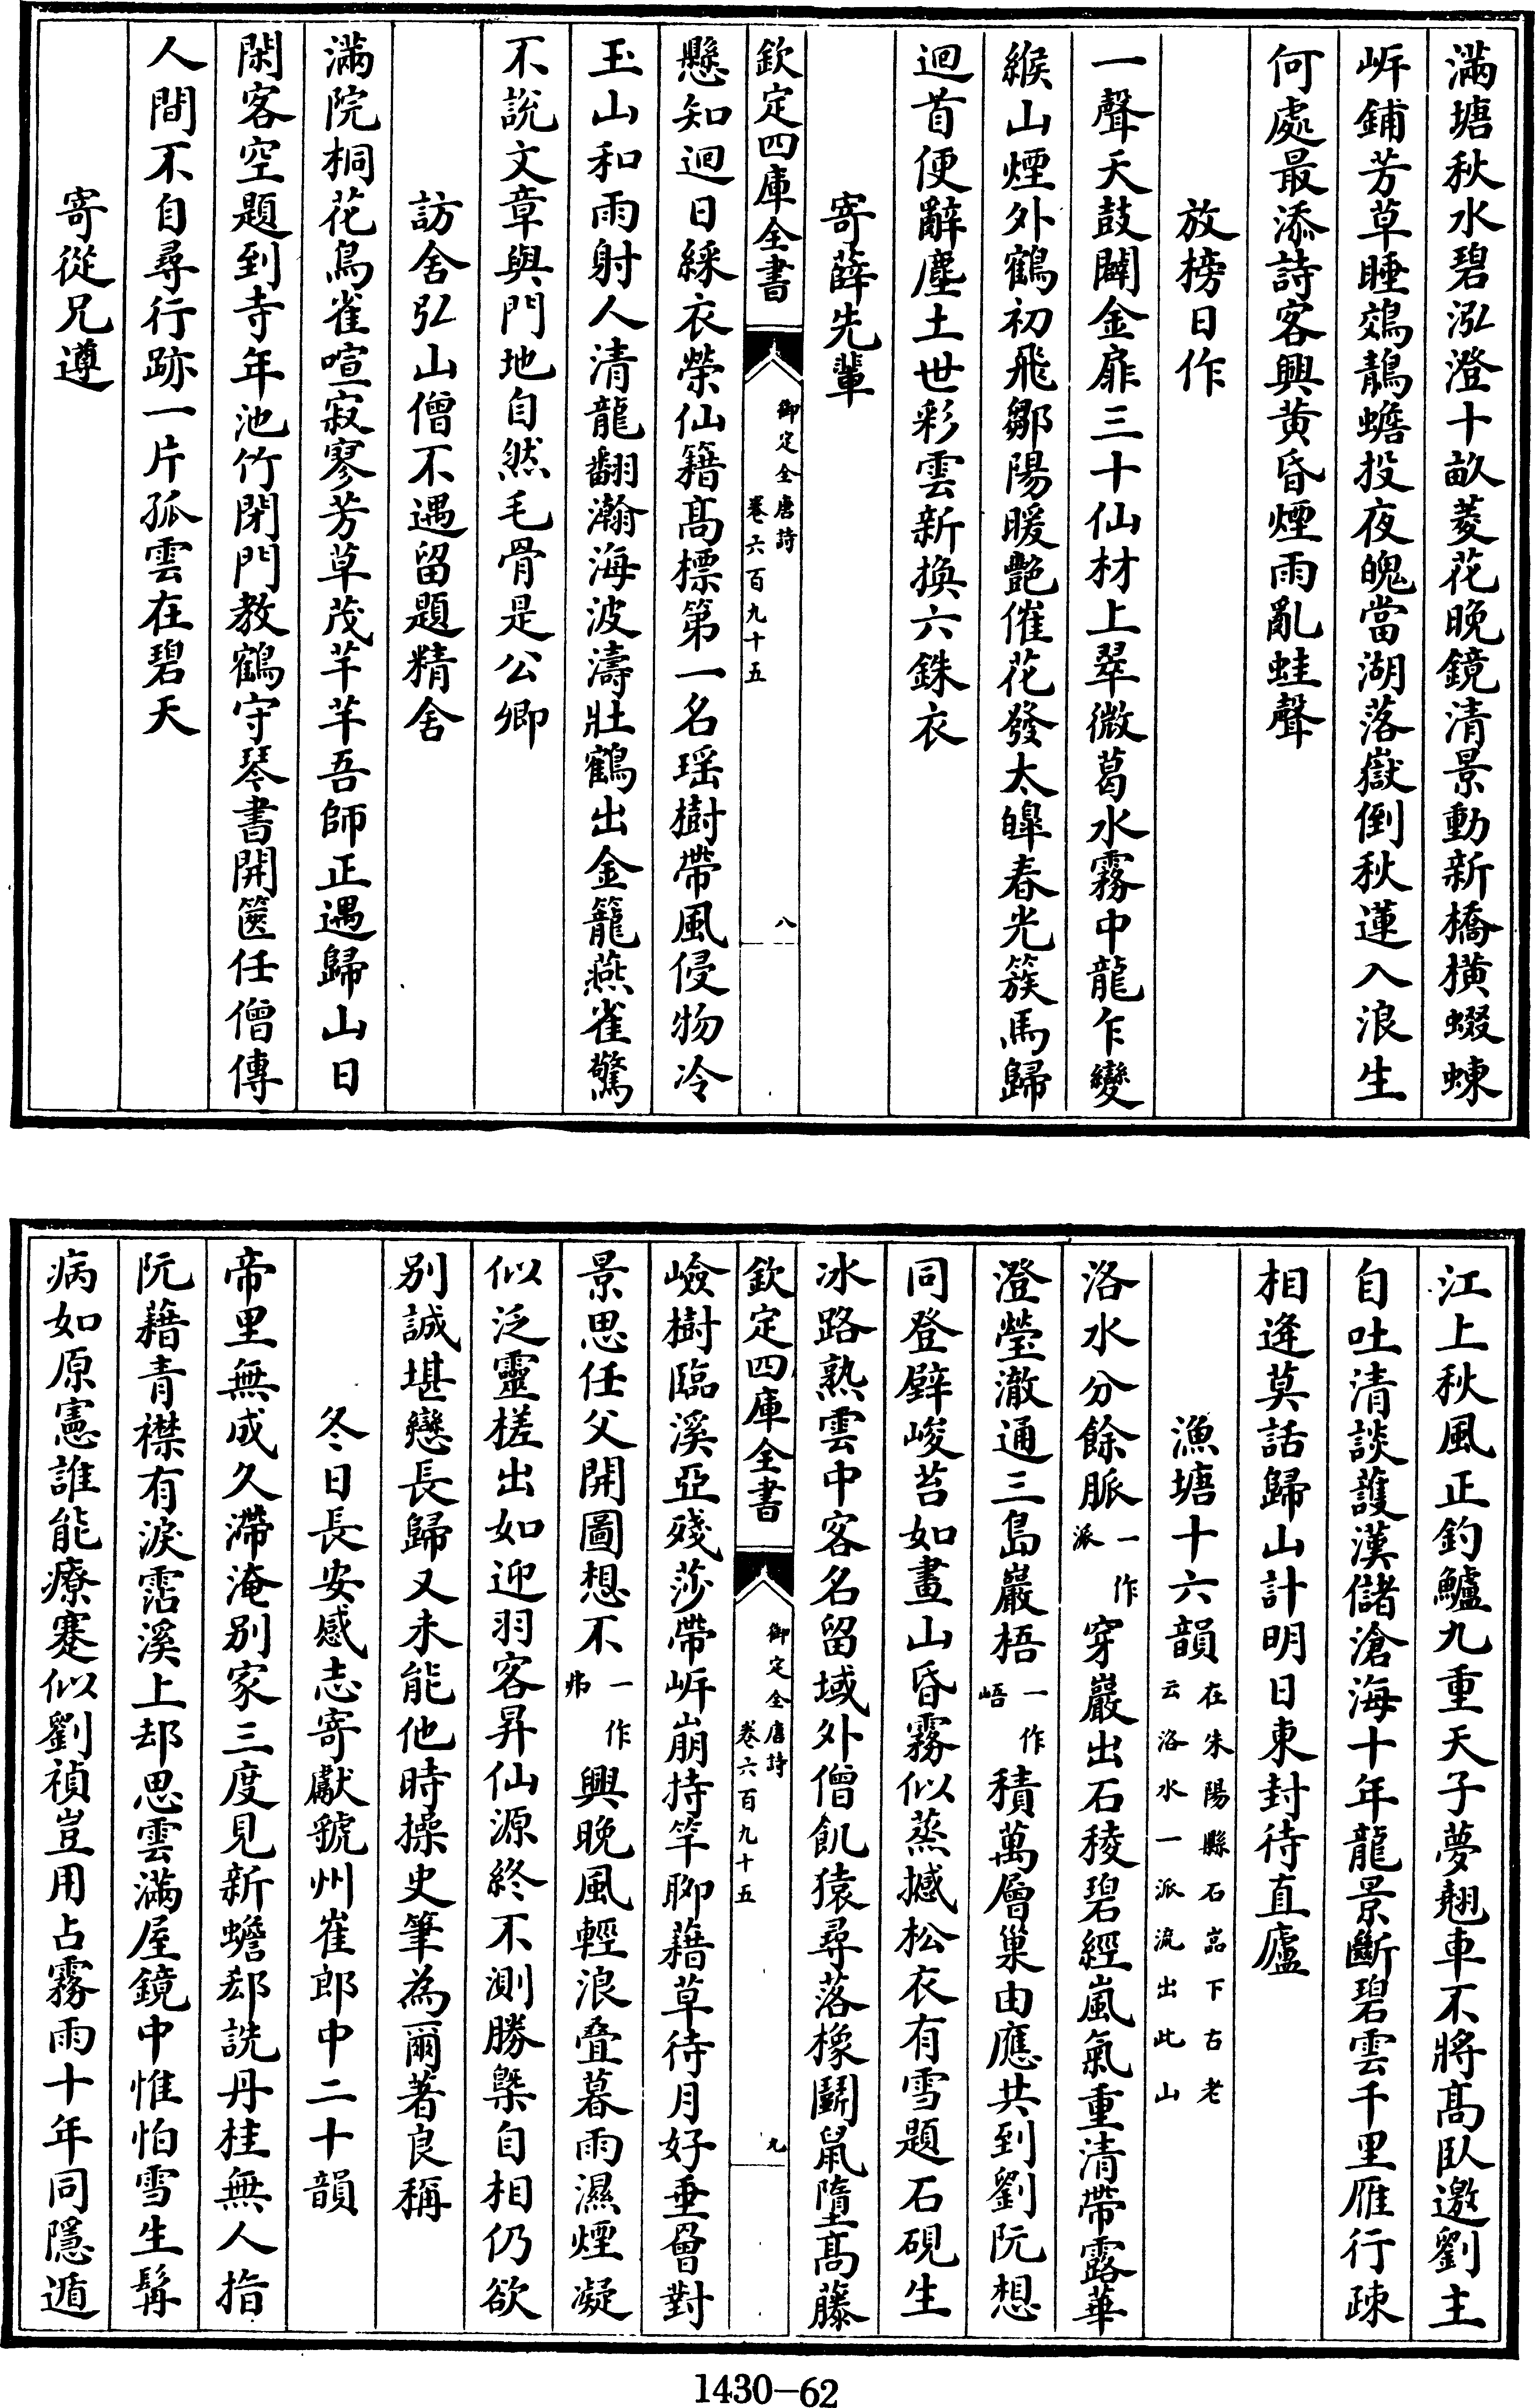 滿塘秋水碧泓澄十畝菱花晚鏡清景動新橋橫蝃蝀
岍鋪芳草睡鵁鶄蟾投夜魄當湖落嶽倒秋蓮入浪生
何處最添詩客興黄昏煙雨亂蛙聲
放榜日作
一聲天鼓闢金扉三十仙材上翠微葛水霧中龍乍變
緱山煙外鶴初飛鄒陽暖艷催花發太皥春光簇馬歸
迴首便辭塵土世彩雲新換六銖衣
寄薛先輩
欽定四庫全書
御定全唐詩
卷六百九十五
八
懸知迴日綵衣榮仙籍髙標第一名瑶樹帶風侵物冷
玉山和雨射人清龍翻瀚海波濤壯鶴出金籠燕雀驚
不說文章與門地自然毛骨是公卿
訪含弘山僧不遇留題精舍
滿院桐花鳥雀喧寂寥芳草茂芊芊吾師正遇歸山日
閑客空題到寺年池竹閉門教鶴守琴書開篋任僧傳
人間不自尋行跡一片孤雲在碧天
寄從兄遵
江上秋風正釣鱸九重天子夢翹車不將髙臥邀劉主
自吐清談護漢儲滄海十年龍景斷碧雲千里雁行疎
相逢莫話歸山計明日東封待直廬
漁塘十六韻在朱陽縣石岩下古老云洛水一派流出此山
洛水分餘脈一作派穿巖出石稜碧經嵐氣重清帶露華
澄瑩澈通三島巖梧一作峿積萬層巢由應共到劉阮想
同登壁峻苔如畫山昏霧似蒸撼松衣有雪題石硯生
冰路熟雲中客名留域外僧飢猿尋落橡鬬鼠墮髙藤
欽定四庫全書
御定全唐詩
卷六百九十五
九
嶮樹臨溪亞殘莎帶岍崩持竿聊藉草待月好垂罾對
景思任父開圖想不一作弗興晚風輕浪叠暮雨濕煙凝
似泛靈槎出如迎羽客昇仙源終不測勝槩自相仍欲
别誠堪戀長歸又未能他時操史筆為爾著良稱
冬日長安感志寄獻虢州崔郎中二十韻
帝里無成久滯淹别家三度見新蟾郄詵丹桂無人指
阮藉青襟有淚霑溪上却思雲滿屋鏡中惟怕雪生髯
病如原憲誰能療蹇似劉禎豈用占霧雨十年同隱遁
1430-62